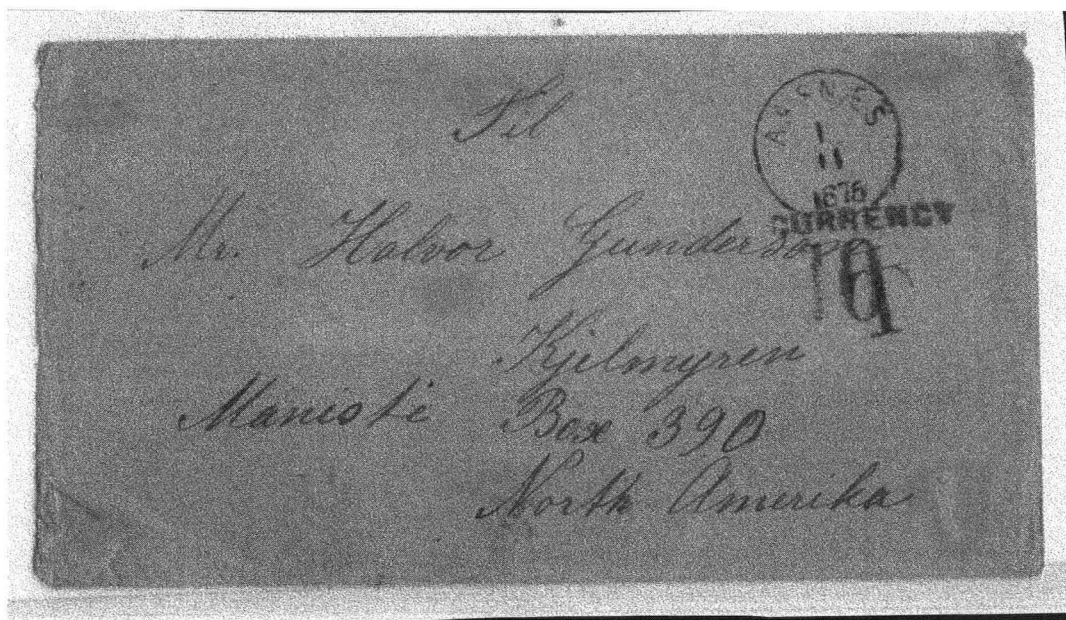 Til
1
11
1878
CURRENCY
Mr. Halvor Gunderson
10
Kjelmyren
Manisti Box 390
North Amerika